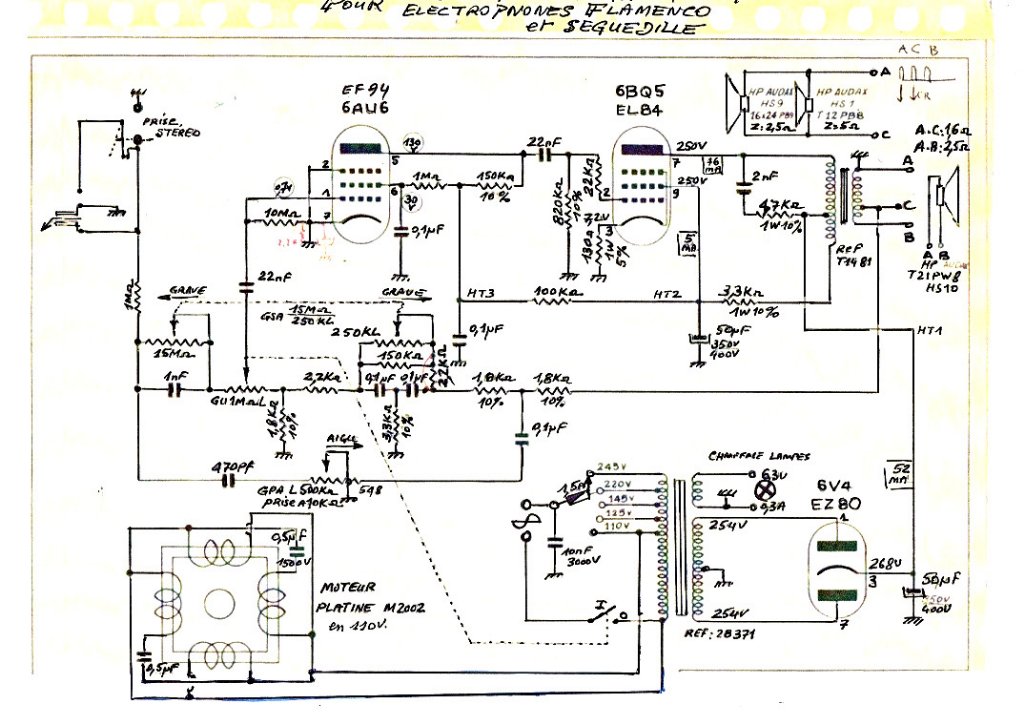 POUR ELECTROPHONES FLAMENCO
et SEGUEDILLE
A C B
EF94
6AU6
6BQ5
EL84
HP AUDAX
HS9
16x24 PB9
Z: 2,5Ω
HP AUDAX
HS1
T12PB8
Z: 5Ω
A
C
CR
A.C: 16Ω
A.B: 2,5Ω
PRISE
STEREO
130
5
22nF
250V
7
16
MA
2
1
7
6
30
V
1MΩ
150KΩ
10%
820KΩ
10%
22KΩ
2
250V
9
2nF
47KΩ
1W 10%
A
C
B
A B
0,7V
10MΩ
0,1µF
7,2V
3
180Ω
1W
5%
5
MA
REF
T1981
HP AUDAX
T21PW8
HS10
22nF
HT3
100KΩ
HT2
3,3KΩ
1W 10%
HT1
1MΩ
GRAVE
GRAVE
GSA 15MΩ
250KL
0,1µF
50µF
350V
400V
15MΩ
250KL
150KΩ
2,2KΩ
1nF
GU1MΩL
2,2KΩ
0,1µF
0,1µF
1,8KΩ
10%
1,8KΩ
10%
1,8KΩ
10%
3,3KΩ
10%
0,1µF
AIGU
470PF
GPA L 500KΩ
PRISE A 10KΩ
548
245V
220V
145V
125V
110V
1,5A
10nF
3000V
CHAUFFAGE LAMPES
6,3V
0,3A
52
MA
6V4
EZ80
254V
1
268V
3
50µF
350V
400V
254V
7
REF: 28371
I
O
0,5µF
1500V
MOTEUR
PLATINE M2002
en 110V.
0,5µF